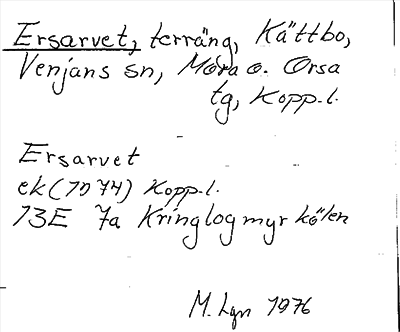 Ersarvet, terräng, Kättbo,
Venjans sn, Mora o. Orsa
tg, Kopp.l.
Ersarvet
ek (1974) Kopp.l.
13E 7a Kringlogmyrkölen
M. Lgn 1976